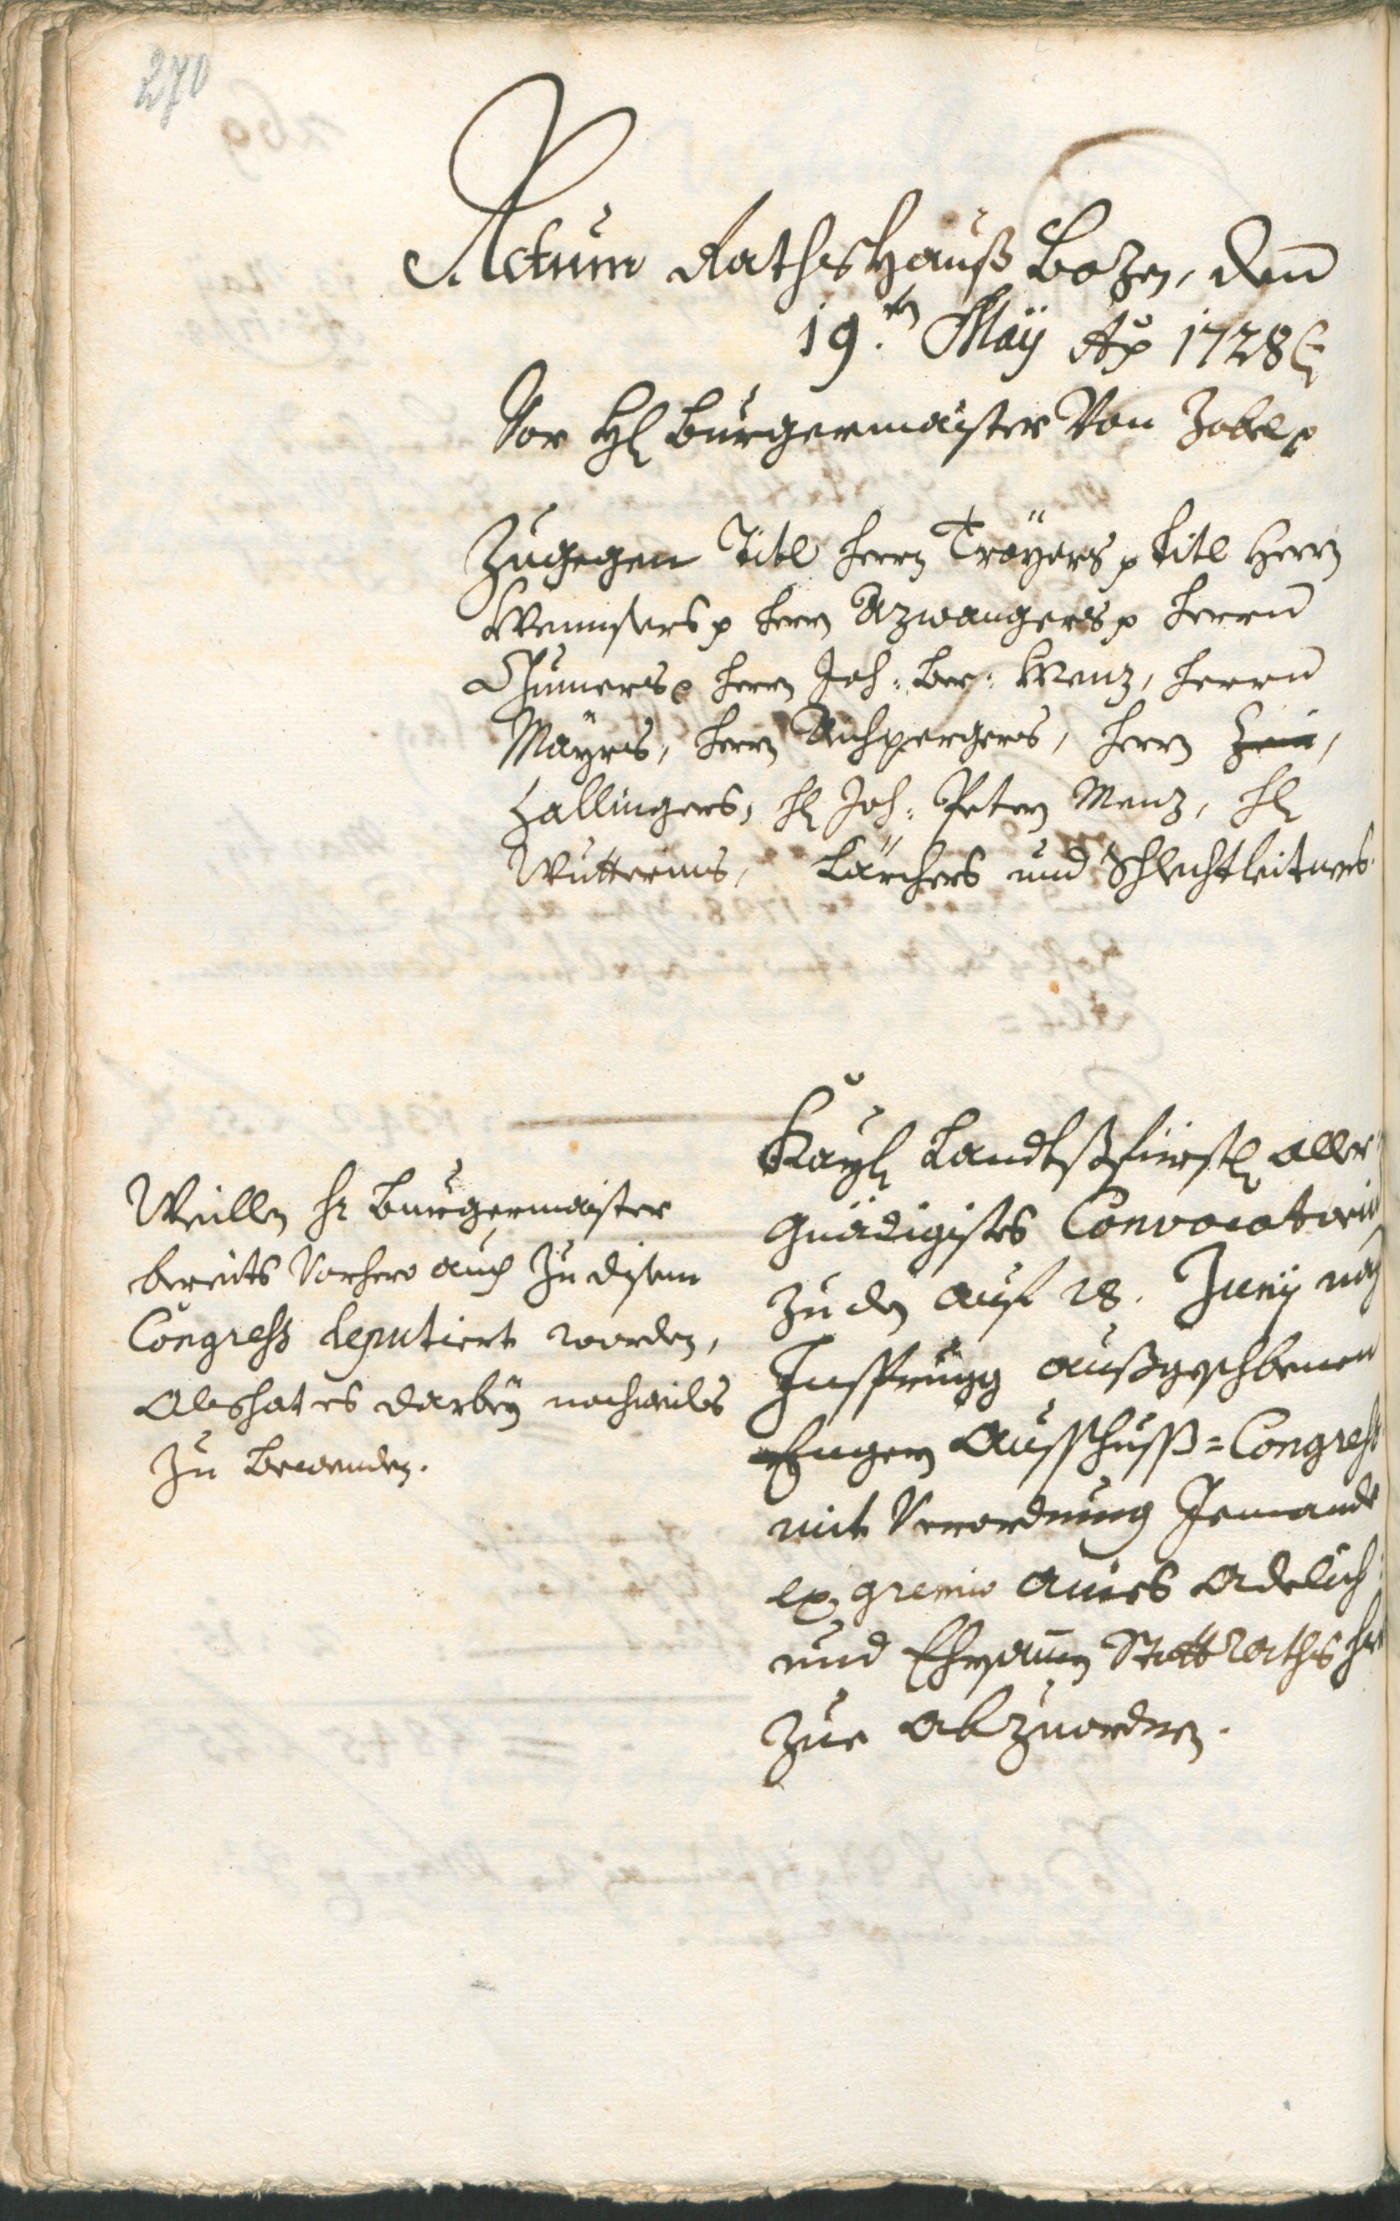 270
Actum Rathshauß Bozen, den
19.ten Maÿ Ao 1728
Vor H Burgermaister Von Zobel p
Zugegen Titl herrn Troÿers p titl Herrn
herrn Azwangers p herrn
herrn Joh: herrn
Maÿrs, herrn Aichpergers, herrn
Hallingers, H Joh: Peter Menz, H
Wutterins, Lärchers und Schlechtleitners.
Kaÿl Landtsfürstl aller
gnädigistes Convocatorium
zu den auf 28. Junÿ nach
Insprugg außgeschribenen
Engern Ausschuß=Congress
mit Verordnung Jemandt
ex gremio aines Adelich:
und Ehrsamen Statt Raths hier
zue abzuordnen.
Weillen Hr Burgermaister
bereits Vorhero auch zu disem
Congress deputiert worden,
Als hat es darbeÿ nochmals
zu bewenden.